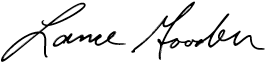 Lance Gooden